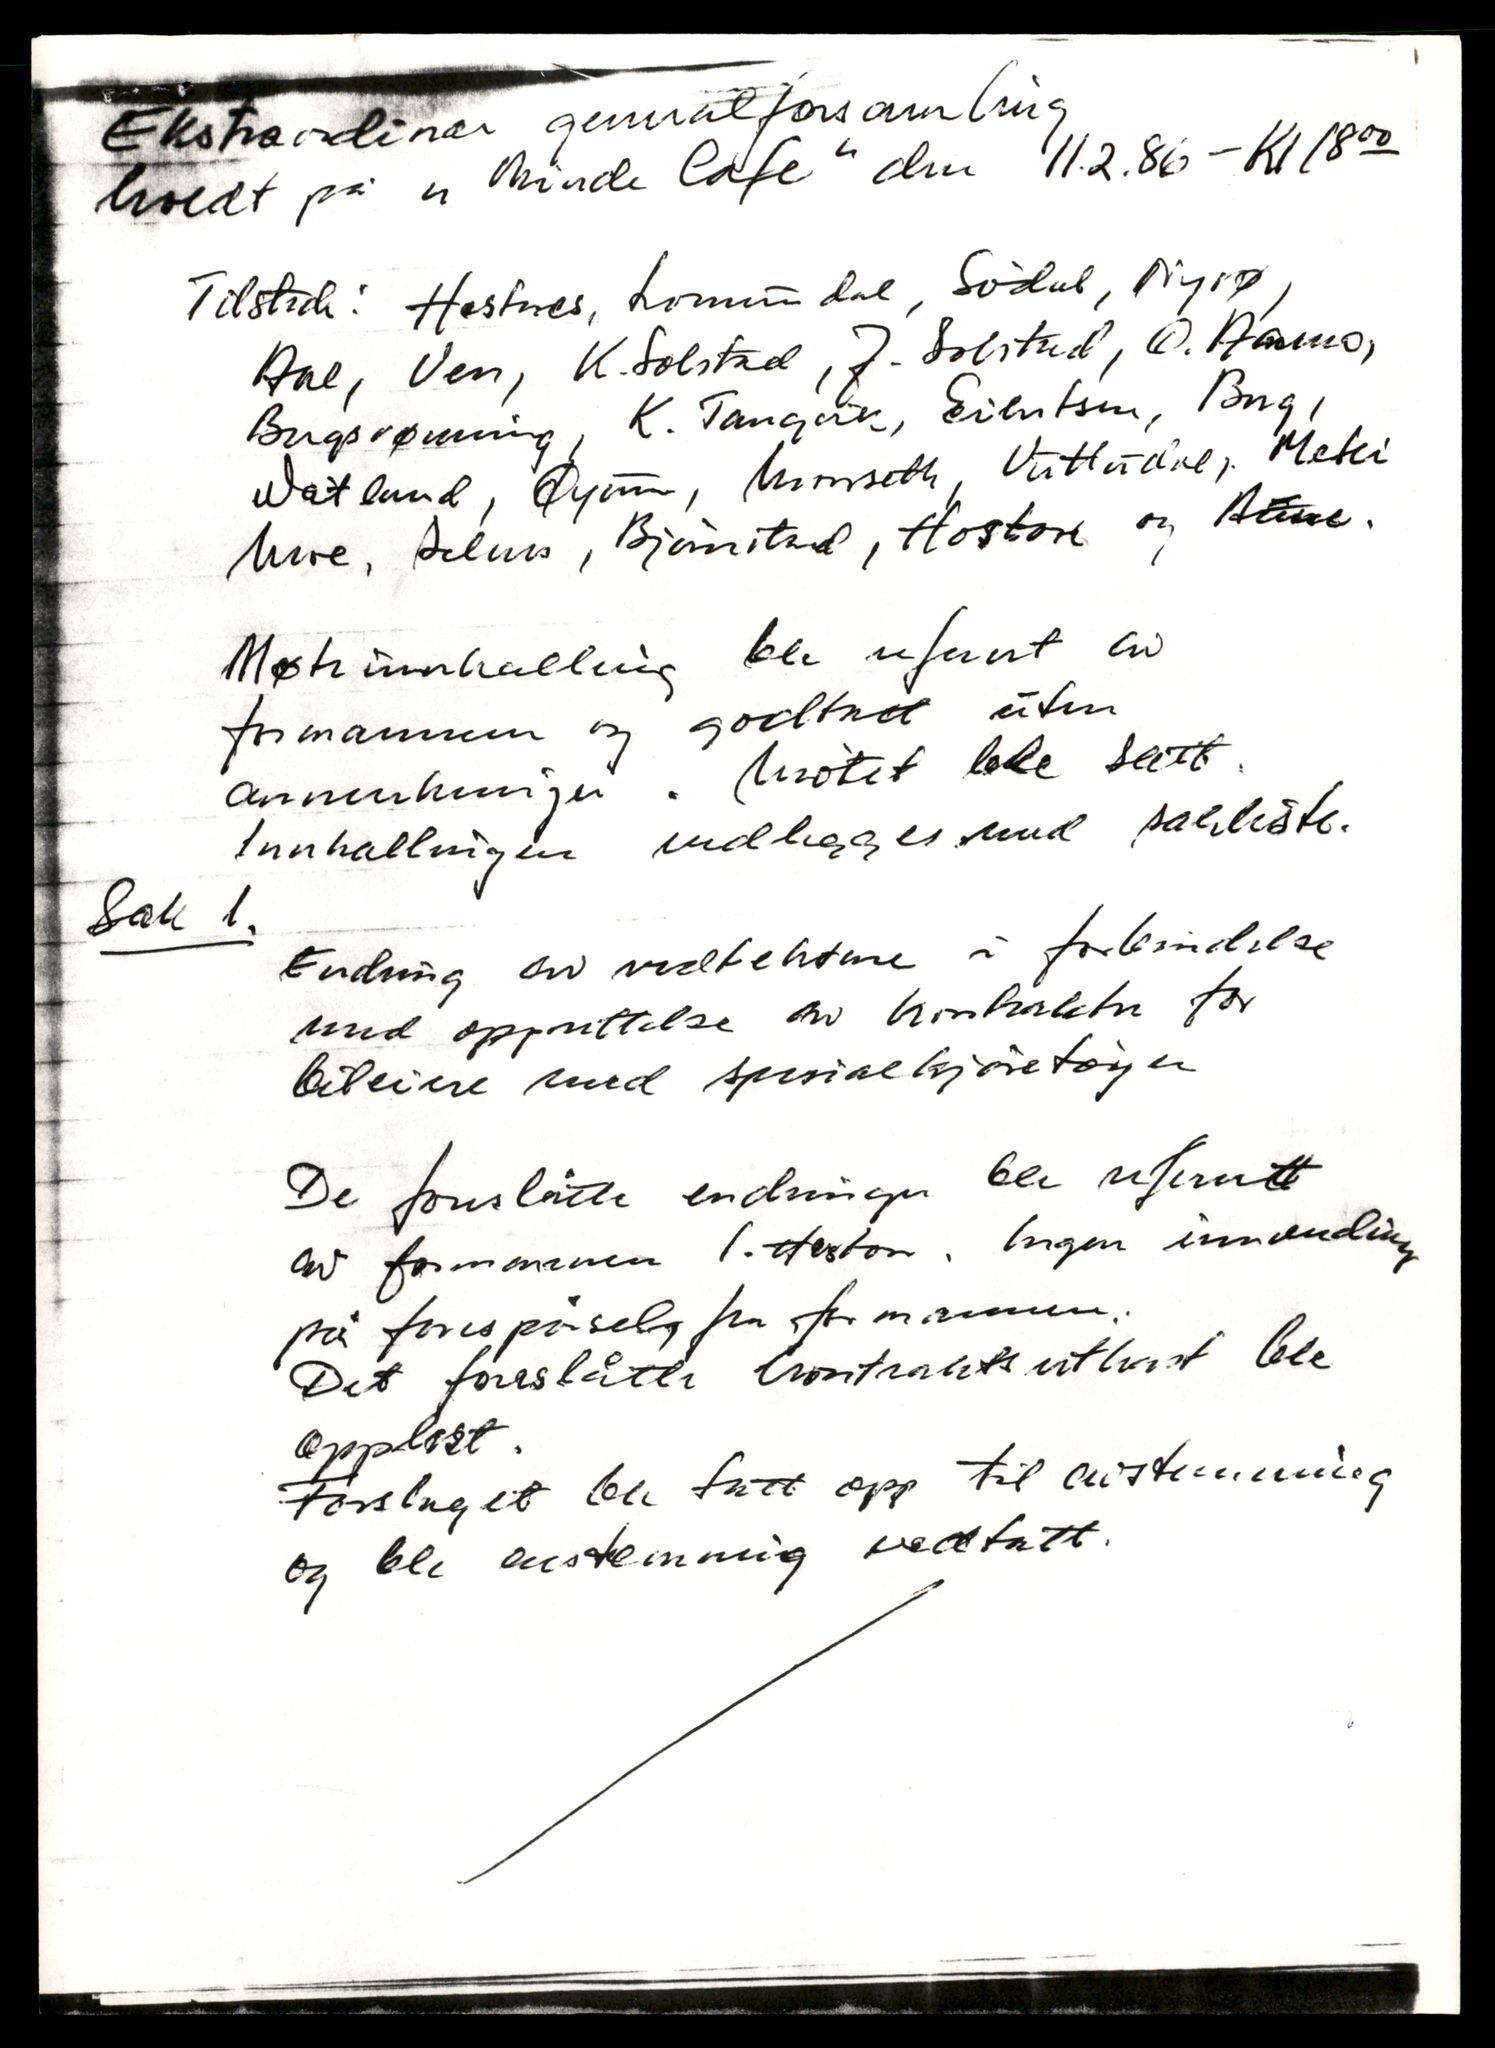 Ekstraordinær generalforsamling
holdt på "Minde Cafe" den 11.2.86 - Kl 18⁰⁰
Tilstede: Hestnes, Lomundal, Södal,
Aae, Ven, K. Solstad, J. Solstad, O. Aamo,
Bergsrønning, K. Tangvik, Eilertsen, Berg,
Watland, Øyum, Monseth, Vuttudal,
Moe, Selnes, Bjørnstad, Hostore og Aune.
Møteinnkalling ble referert av
formannen og godtatt uten
anmerkninger. Møtet ble satt.
Innkallingen vedlegges med sakliste.
Sak 1.
Endring av vedtektene i forbindelse
med opprettelse av kontrakter for
bileiere med spesialkjöretöyer
De foreslåtte endringer ble referert
av formannen I. Heston. Ingen innvending
på forespörsel fra formannen.
Det foreslåtte kontraktsutkast ble
opplest.
Forslaget ble tatt opp til avstemming
og ble enstemmig vedtatt.